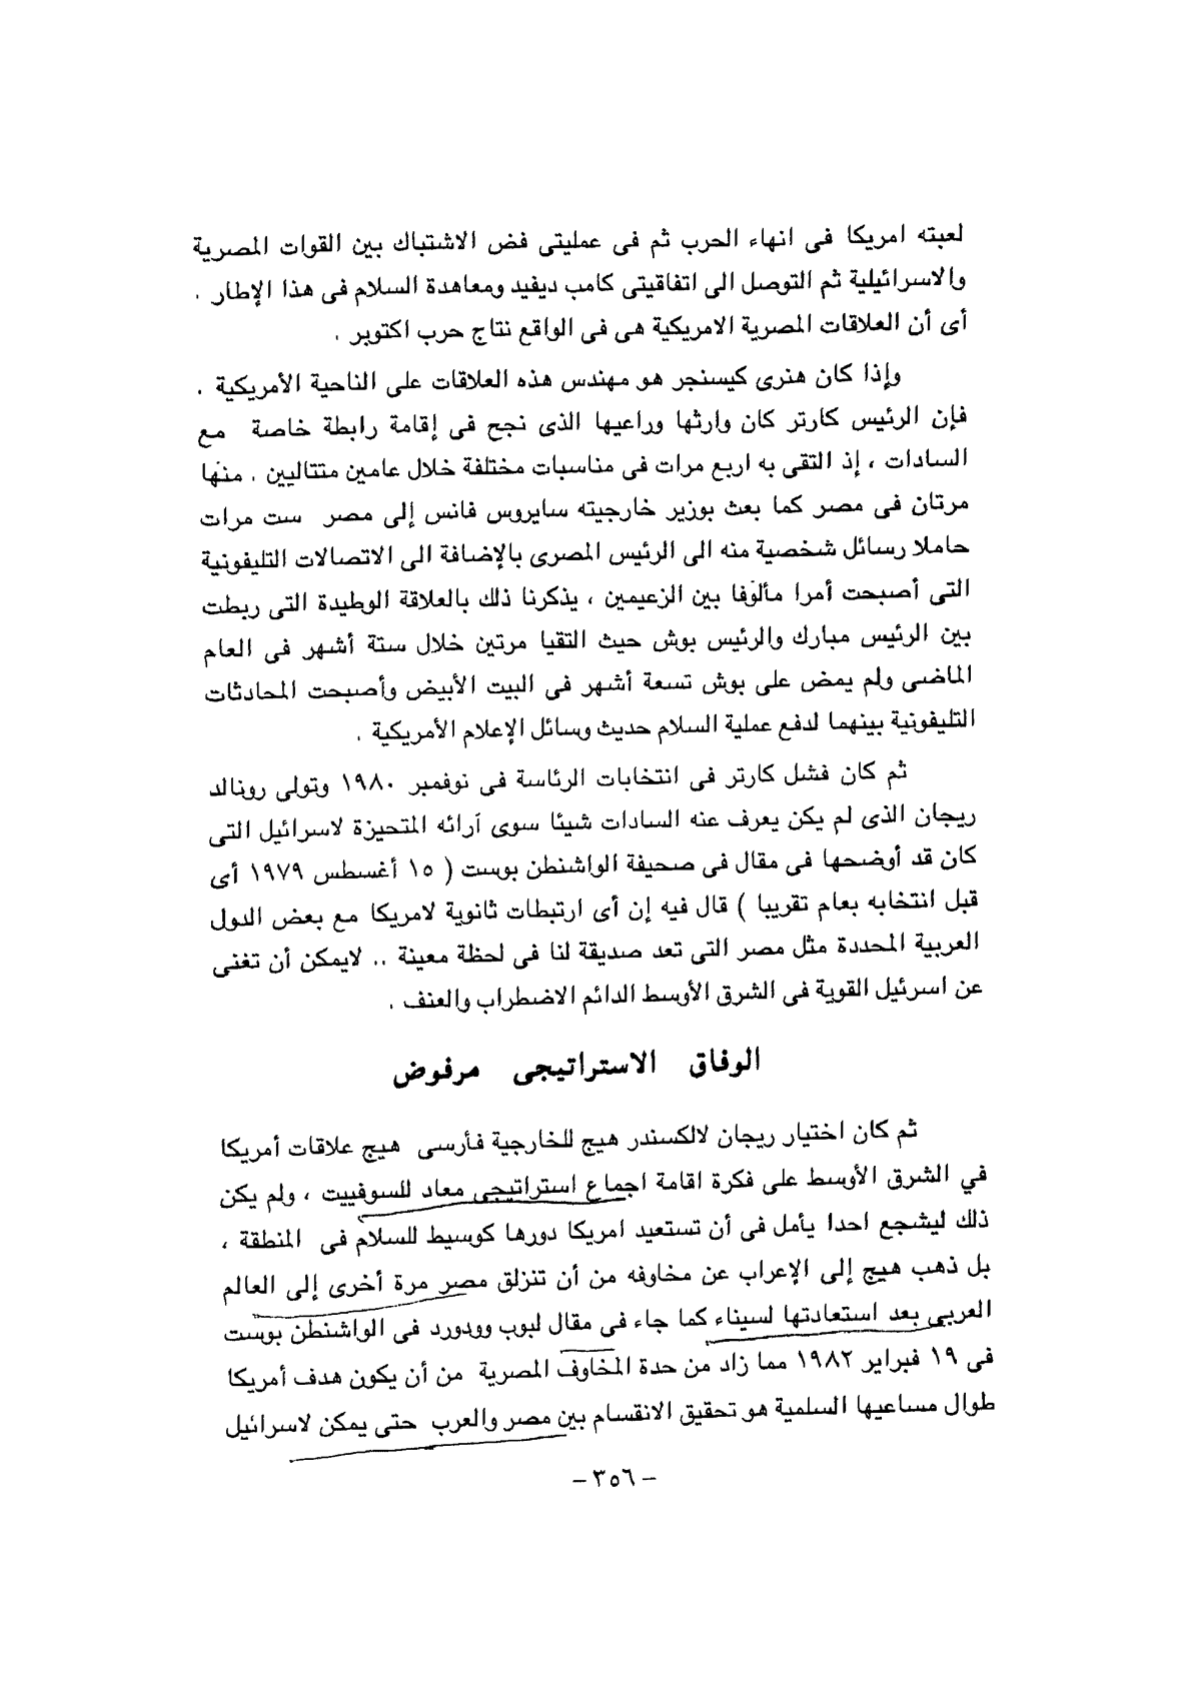 لعبته امريكا فى انهاء الحرب ثم فى عمليتى فض الاشتباك بين القوات المصرية
والاسرائيلية ثم التوصل الى اتفاقيتى كامب ديفيد ومعاهدة السلام فى هذا الإطار .
أى أن العلاقات المصرية الامريكية هى فى الواقع نتاج حرب اكتوبر .
وإذا كان هنرى كيسنجر هو مهندس هذه العلاقات على الناحية الأمريكية .
فإن الرئيس كارتر كان وارثها وراعيها الذى نجح فى إقامة رابطة خاصة مع
السادات ، إذ التقى به اربع مرات فى مناسبات مختلفة خلال عامين متتاليين . منها
مرتان فى مصر كما بعث بوزير خارجيته سايروس فانس إلى مصر ست مرات
حاملا رسائل شخصية منه الى الرئيس المصرى بالإضافة الى الاتصالات التليفونية
التى أصبحت أمرا مألوفا بين الزعيمين ، يذكرنا ذلك بالعلاقة الوطيدة التى ربطت
بين الرئيس مبارك والرئيس بوش حيث التقيا مرتين خلال ستة أشهر فى العام
الماضى ولم يمض على بوش تسعة أشهر فى البيت الأبيض وأصبحت المحادثات
التليفونية بينهما لدفع عملية السلام حديث وسائل الإعلام الأمريكية .
ثم كان فشل كارتر فى انتخابات الرئاسة فى نوفمبر ١٩٨٠ وتولى رونالد
ريجان الذى لم يكن يعرف عنه السادات شيئا سوى آرائه المتحيزة لاسرائيل التى
كان قد أوضحها فى مقال فى صحيفة الواشنطن بوست ( ١٥ أغسطس ١٩٧٩ أى
قبل انتخابه بعام تقريبا ) قال فيه إن أى ارتبطات ثانوية لامريكا مع بعض الدول
العربية المحددة مثل مصر التى تعد صديقة لنا فى لحظة معينة .. لايمكن أن تغنى
عن اسرئيل القوية فى الشرق الأوسط الدائم الاضطراب والعنف .
الوفاق الاستراتيجى مرفوض
ثم كان اختيار ريجان لالكسندر هيج للخارجية فأرسى هيج علاقات أمريكا
في الشرق الأوسط على فكرة اقامة اجماع استراتيجى معاد للسوفييت ، ولم يكن
ذلك ليشجع احدا يأمل فى أن تستعيد امريكا دورها كوسيط للسلام فى المنطقة ،
بل ذهب هيج إلى الإعراب عن مخاوفه من أن تنزلق مصر مرة أخرى إلى العالم
العربى بعد استعادتها لسيناء كما جاء فى مقال لبوب وودورد فى الواشنطن بوست
فى ١٩ فبراير ١٩٨٢ مما زاد من حدة المخاوف المصرية من أن يكون هدف أمريكا
طوال مساعيها السلمية هو تحقيق الانقسام بين مصر والعرب حتى يمكن لاسرائيل
– ٣٥٦ –